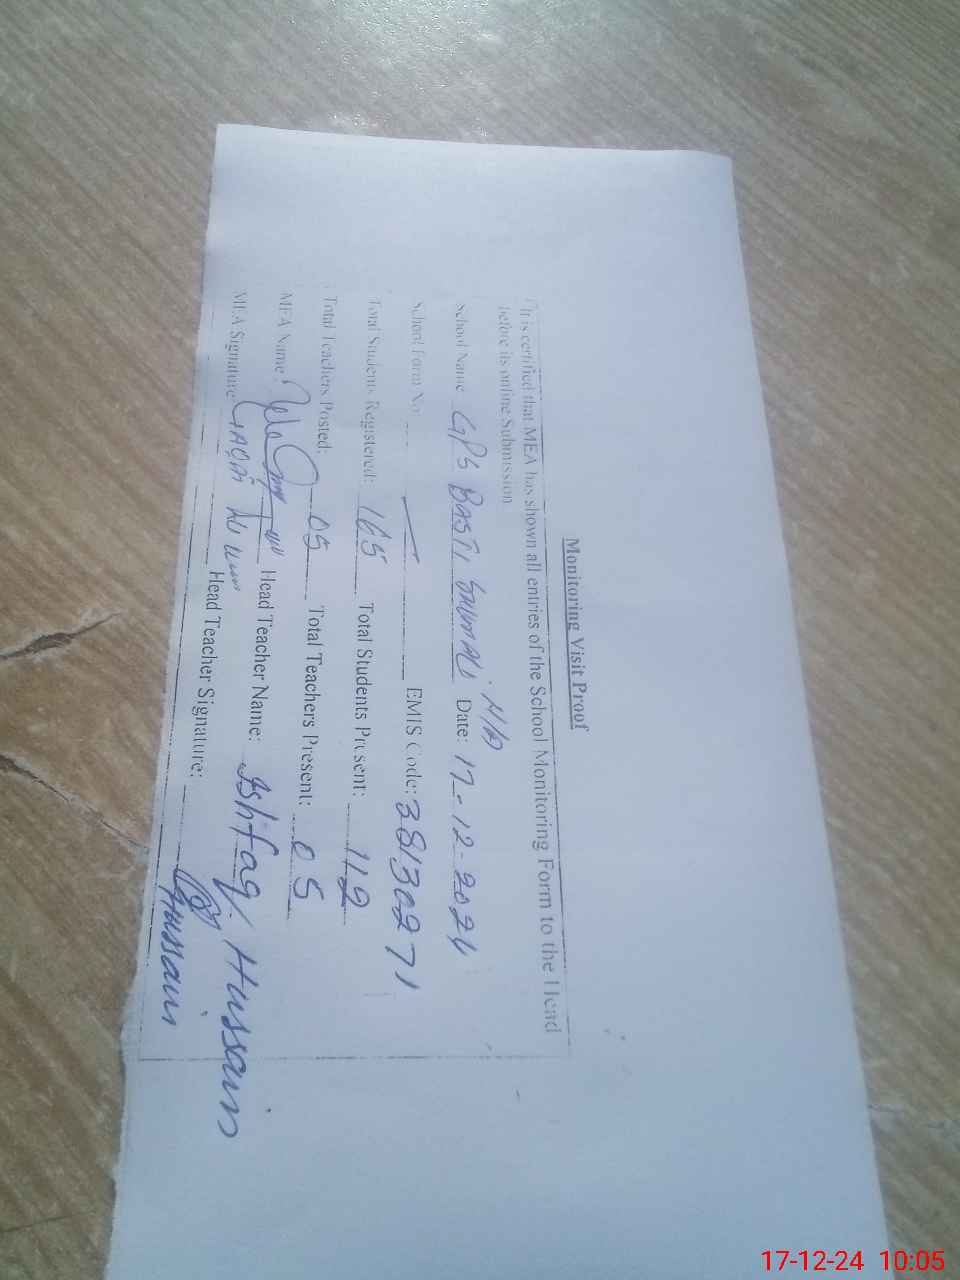 Monitoring Visit Proof
It is certified that MEA has shown all entries of the School Monitoring Form to the Head
before its online Submission
School Name GPS BASTI Date: 17-12-2024
School Form No EMIS Code: 38130271
Total Students Registered: 165 Total Students Present: 112
Total Teachers Posted: 05 Total Teachers Present: 05
MEA Name: Head Teacher Name: Ishfaq Hussain
MEA Signature Head Teacher Signature: Hussain
17-12-24 10:05